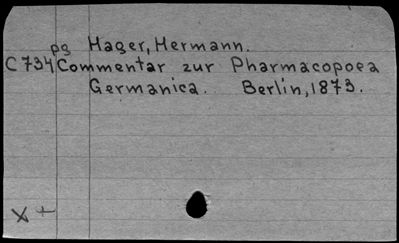 pg Hager, Hermann.
C734 Commentar zur Pharmacopoea
Germanica. Berlin, 1873.
X +